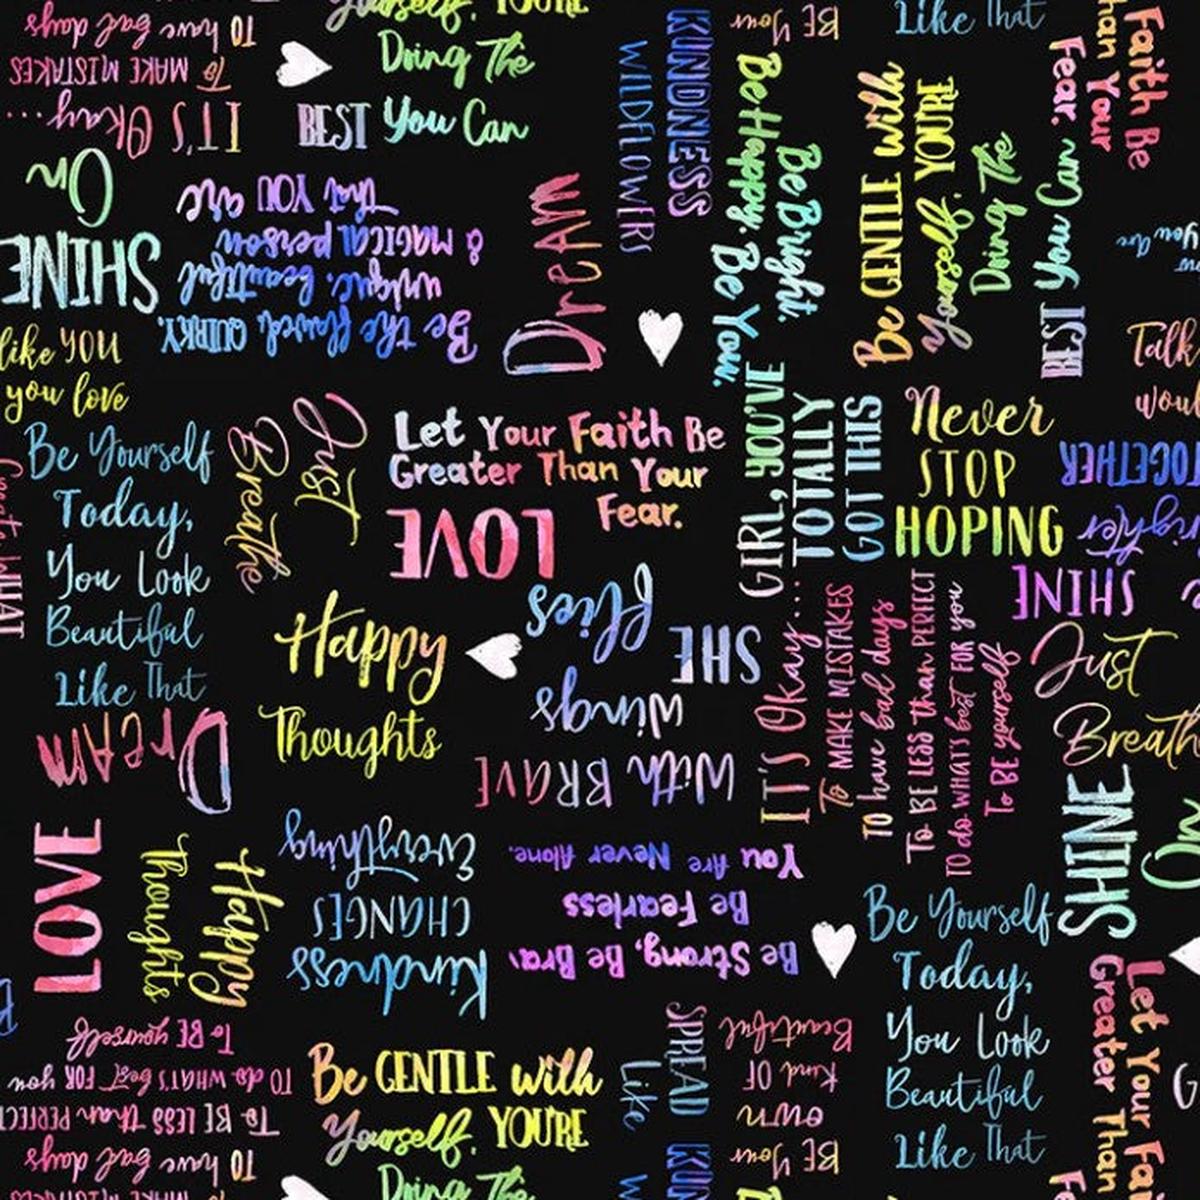 Yourself, YOU'RE
Doing The
BEST You Can
To have bad days
To MAKE MISTAKES
IT'S Okay...
On
SHINE
like YOU
you love
Be the flawed, QUIRKY,
unique, beautiful
& MAGICAL person
that YOU are
DreAM
KINDNESS
Like
WILDFLOWERS
Be Bright.
Be Happy. Be You.
BE Your
Like That
Be GENTLE with
Yourself, YOU'RE
Doing The
BEST You Can
Faith Be
Than Your
Fear.
You Are
Talk
Be Yourself
Today,
You Look
Beautiful
Like That
Just
Breathe
Let Your Faith Be
Greater Than Your
Fear.
LOVE
GIRL, YOU'VE
TOTALLY
GOT THIS
Never
STOP
HOPING
TOGETHER
SHINE
Happy
Thoughts
SHE
flies
With BRAVE
wings
IT'S Okay...
To MAKE MISTAKES
To have bad days
To BE LESS than PERFECT
TO do WHAT'S best FOR you
To BE yourself
Just
Breathe
SHINE
On
DreAM
LOVE
Happy
Thoughts
Kindness
CHANGES
Everything
Be Strong, Be Brav
Be Fearless
You Are Never Alone.
Be Yourself
Today,
You Look
Beautiful
Like That
Let Your Faith
Greater Than
To BE yourself
TO do WHAT'S best FOR you
To BE LESS than PERFECT
To have bad days
To MAKE MISTAKES
Be GENTLE with
Yourself, YOU'RE
Doing The
SPREAD
KIN
Like
BE Your
own
Kind OF
Beautiful